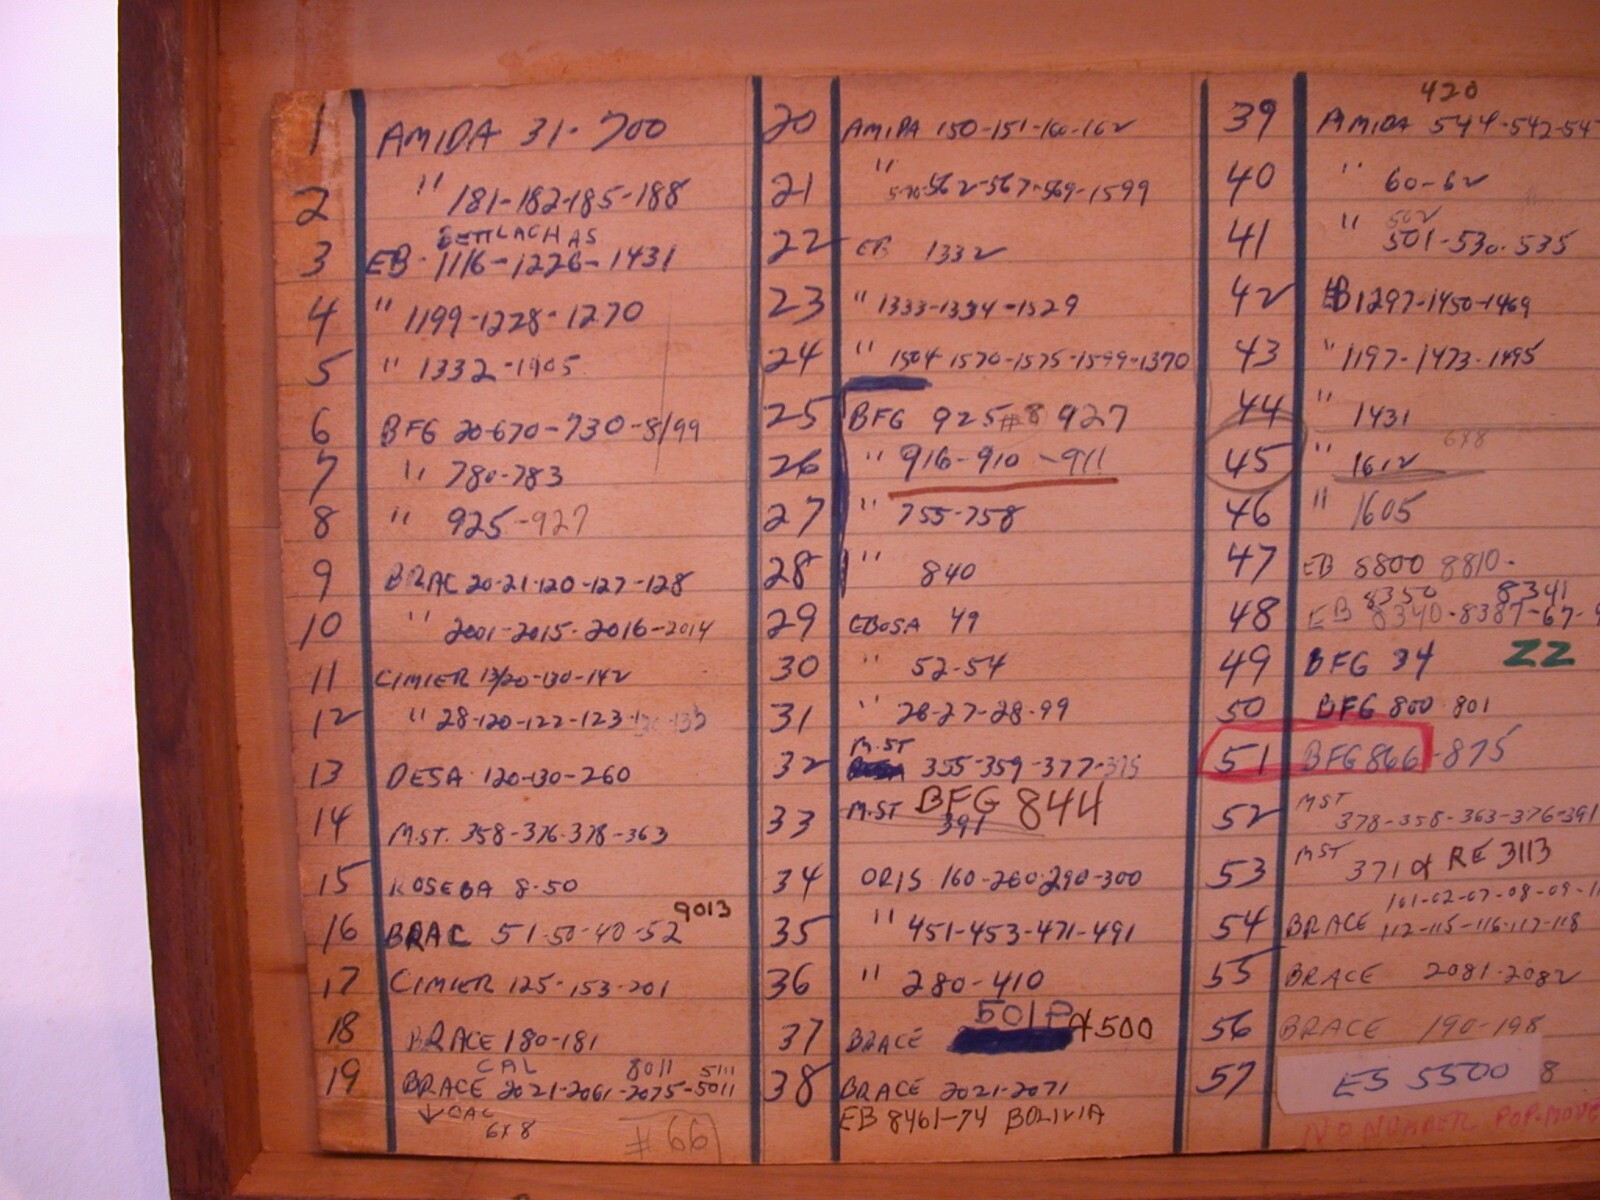 1 AMIDA 31-700
2 " 181-182-185-188
BETTLACH AS
3 EB-1116-1226-1431
4 " 1199-1228-1270
5 " 1332-1405
6 BFG 20-670-730-8/99
7 " 780-783
8 " 925-927
9 BRAC 20-21-120-127-128
10 " 2001-2015-2016-2014
11 CIMIER 13/20-130-142
12 " 28-120-122-123
13 DESA 120-130-260
14 M.ST. 358-376-378-363
15 ROSEBA 8-50
9013
16 BRAC 51-50-40-52
17 CIMIER 125-153-201
18 BRACE 180-181
CAL 8011 5111
19 BRACE 2021-2061-2075-5011
↓ CAL
6x8
# 99
20 AMIDA 150-151-160-162
21 " 562-567-569-1599
22 EB 1332
23 " 1333-1334-1529
24 " 1504 1570-1575-1599-1370
25 BFG 925 # 8 927
26 " 916-910-911
27 " 755-758
28 " 840
29 EBOSA 49
30 " 52-54
31 " 26-27-28-99
32 M.ST 355-359-377-375
33 M.ST BFG 844
391
34 ORIS 160-260-290-300
35 " 451-453-471-491
36 " 280-410
501P
37 BRACE &500
38 BRACE 2021-2071
EB 8461-74 BOLIVIA
420
39 AMIDA 544-542-54
40 " 60-62
502
41 " 501-530-535
42 EB1297-1450-1469
43 " 1197-1473-1495
44 " 1431
688
45 " 1612
46 " 1605
47 EB 8800 8810-
8350 8341
48 EB 8340-8387-67-9
49 BFG 34 ZZ
50 BFG 800 801
51 BFG 866-875
52 MST
378-358-363-376-391
53 MST 371 & RE 3113
101-02-07-08-09-11
54 BRACE 112-115-116-117-118
55 BRACE 2081-2082
56 BRACE 190-198
57 ES 5500 8
NO NUMBER POP-MOVE